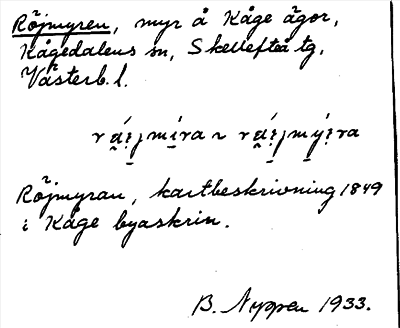 Röjmyren, myr å Kåge ägor,
Kågedalens sn, Skellefteå tg,
Västerb. l.
Röjmyran, kartbeskrivning 1849
i Kåge byaskrin.
B. Nyppen 1933.